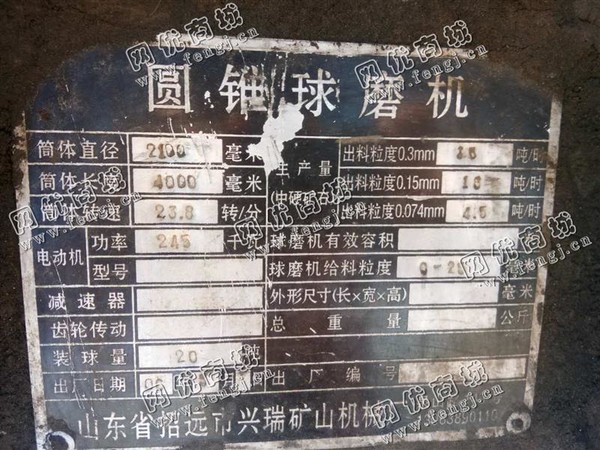 圆锥球磨机
筒体直径 2100 毫米
筒体长度 4000 毫米
筒体转速 23.8 转/分
电动机 功率 245 千
型号
减速器
齿轮传动
装球量 20 吨
出厂日期 月
生产量
中硬矿石
出料粒度0.3mm 吨/时
出料粒度0.15mm 吨/时
出料粒度0.074mm 4.5 吨/时
球磨机有效容积
球磨机给料粒度 毫米
外形尺寸(长×宽×高) 毫米
总重量 公斤
出厂编号
山东省招远市兴瑞矿山机械
网优商城
www.fengj.cn